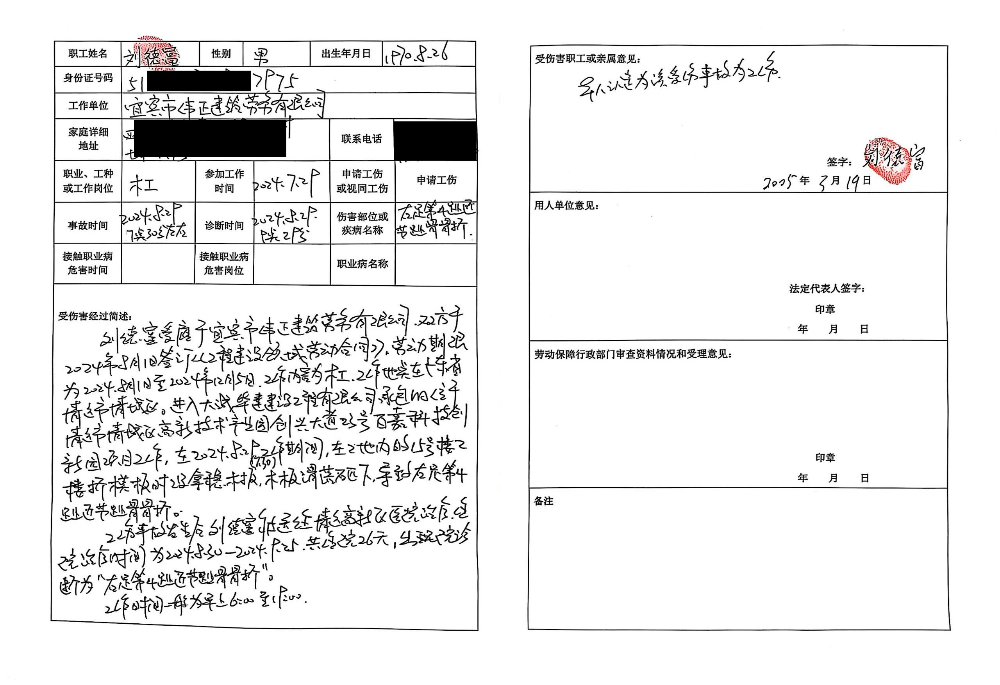 职工姓名 刘德富 性别 男 出生年月日 1970.8.26
身份证号码 51 7975
工作单位 宜宾市伟正建筑劳务有限公司
家庭详细地址 联系电话
职业、工种或工作岗位 木工 参加工作时间 2024.7.29 申请工伤或视同工伤 申请工伤
事故时间 2024.8.29 7点30分左右 诊断时间 2024.8.29. 9点29分 伤害部位或疾病名称 左足第4趾近节趾骨骨折.
接触职业病危害时间 接触职业病危害岗位 职业病名称
受伤害经过简述:
刘德富受雇于宜宾市伟正建筑劳务有限公司.双方于
2024年8月1日签订《工程建设领域劳动合同》,劳动期限
为2024.8月1日至2024年12月5日.工作内容为木工.工作地点在广东省
清远市清城区。进入大 华建建设工程有限公司承包的位于
清远市清城区高新技术产业园创兴大道23号百嘉科技创
新园项目工作,在2024.8.29工作期间,在工地内的15号楼2
楼拆模板时没拿稳木板,木板滑落砸下,导致左足第4
趾近节趾骨骨折。
工伤事故发生后刘德富被送往清远高新区医院治疗.住
院治疗时间为2024.8.30-2024.9.25.共住院26天,出院诊
断为"左足第4趾近节趾骨骨折"。
工作时间一般为早上6:00至19:00.
受伤害职工或亲属意见:
本人认定为该受伤事故为工伤.
签字: 刘德富
2025年3月19日
用人单位意见:
法定代表人签字:
印章
年 月 日
劳动保障行政部门审查资料情况和受理意见:
印章
年 月 日
备注